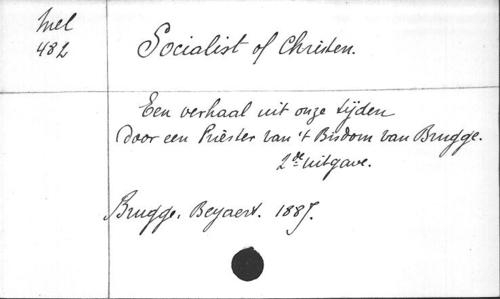 Mel
482
Socialist of Christen.
Een verhaal uit onze tijden
door een Priester van 't Bisdom van Brugge.
2de uitgave.
Brugge. Beyaert. 1887.